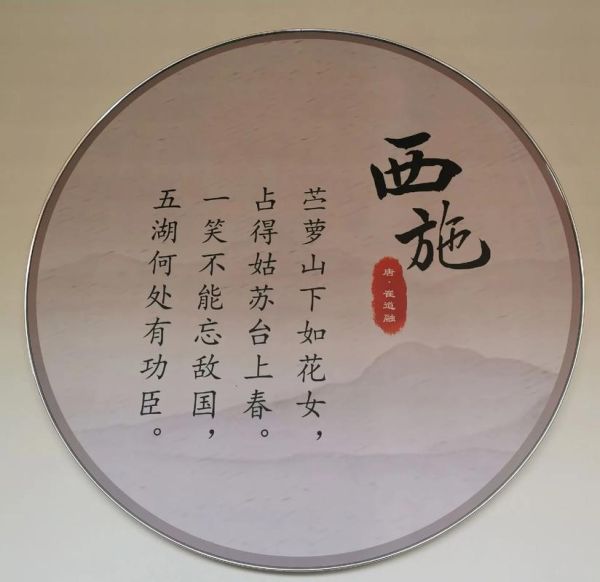 西施
唐·崔道融
苎萝山下如花女，
占得姑苏台上春。
一笑不能忘敌国，
五湖何处有功臣。